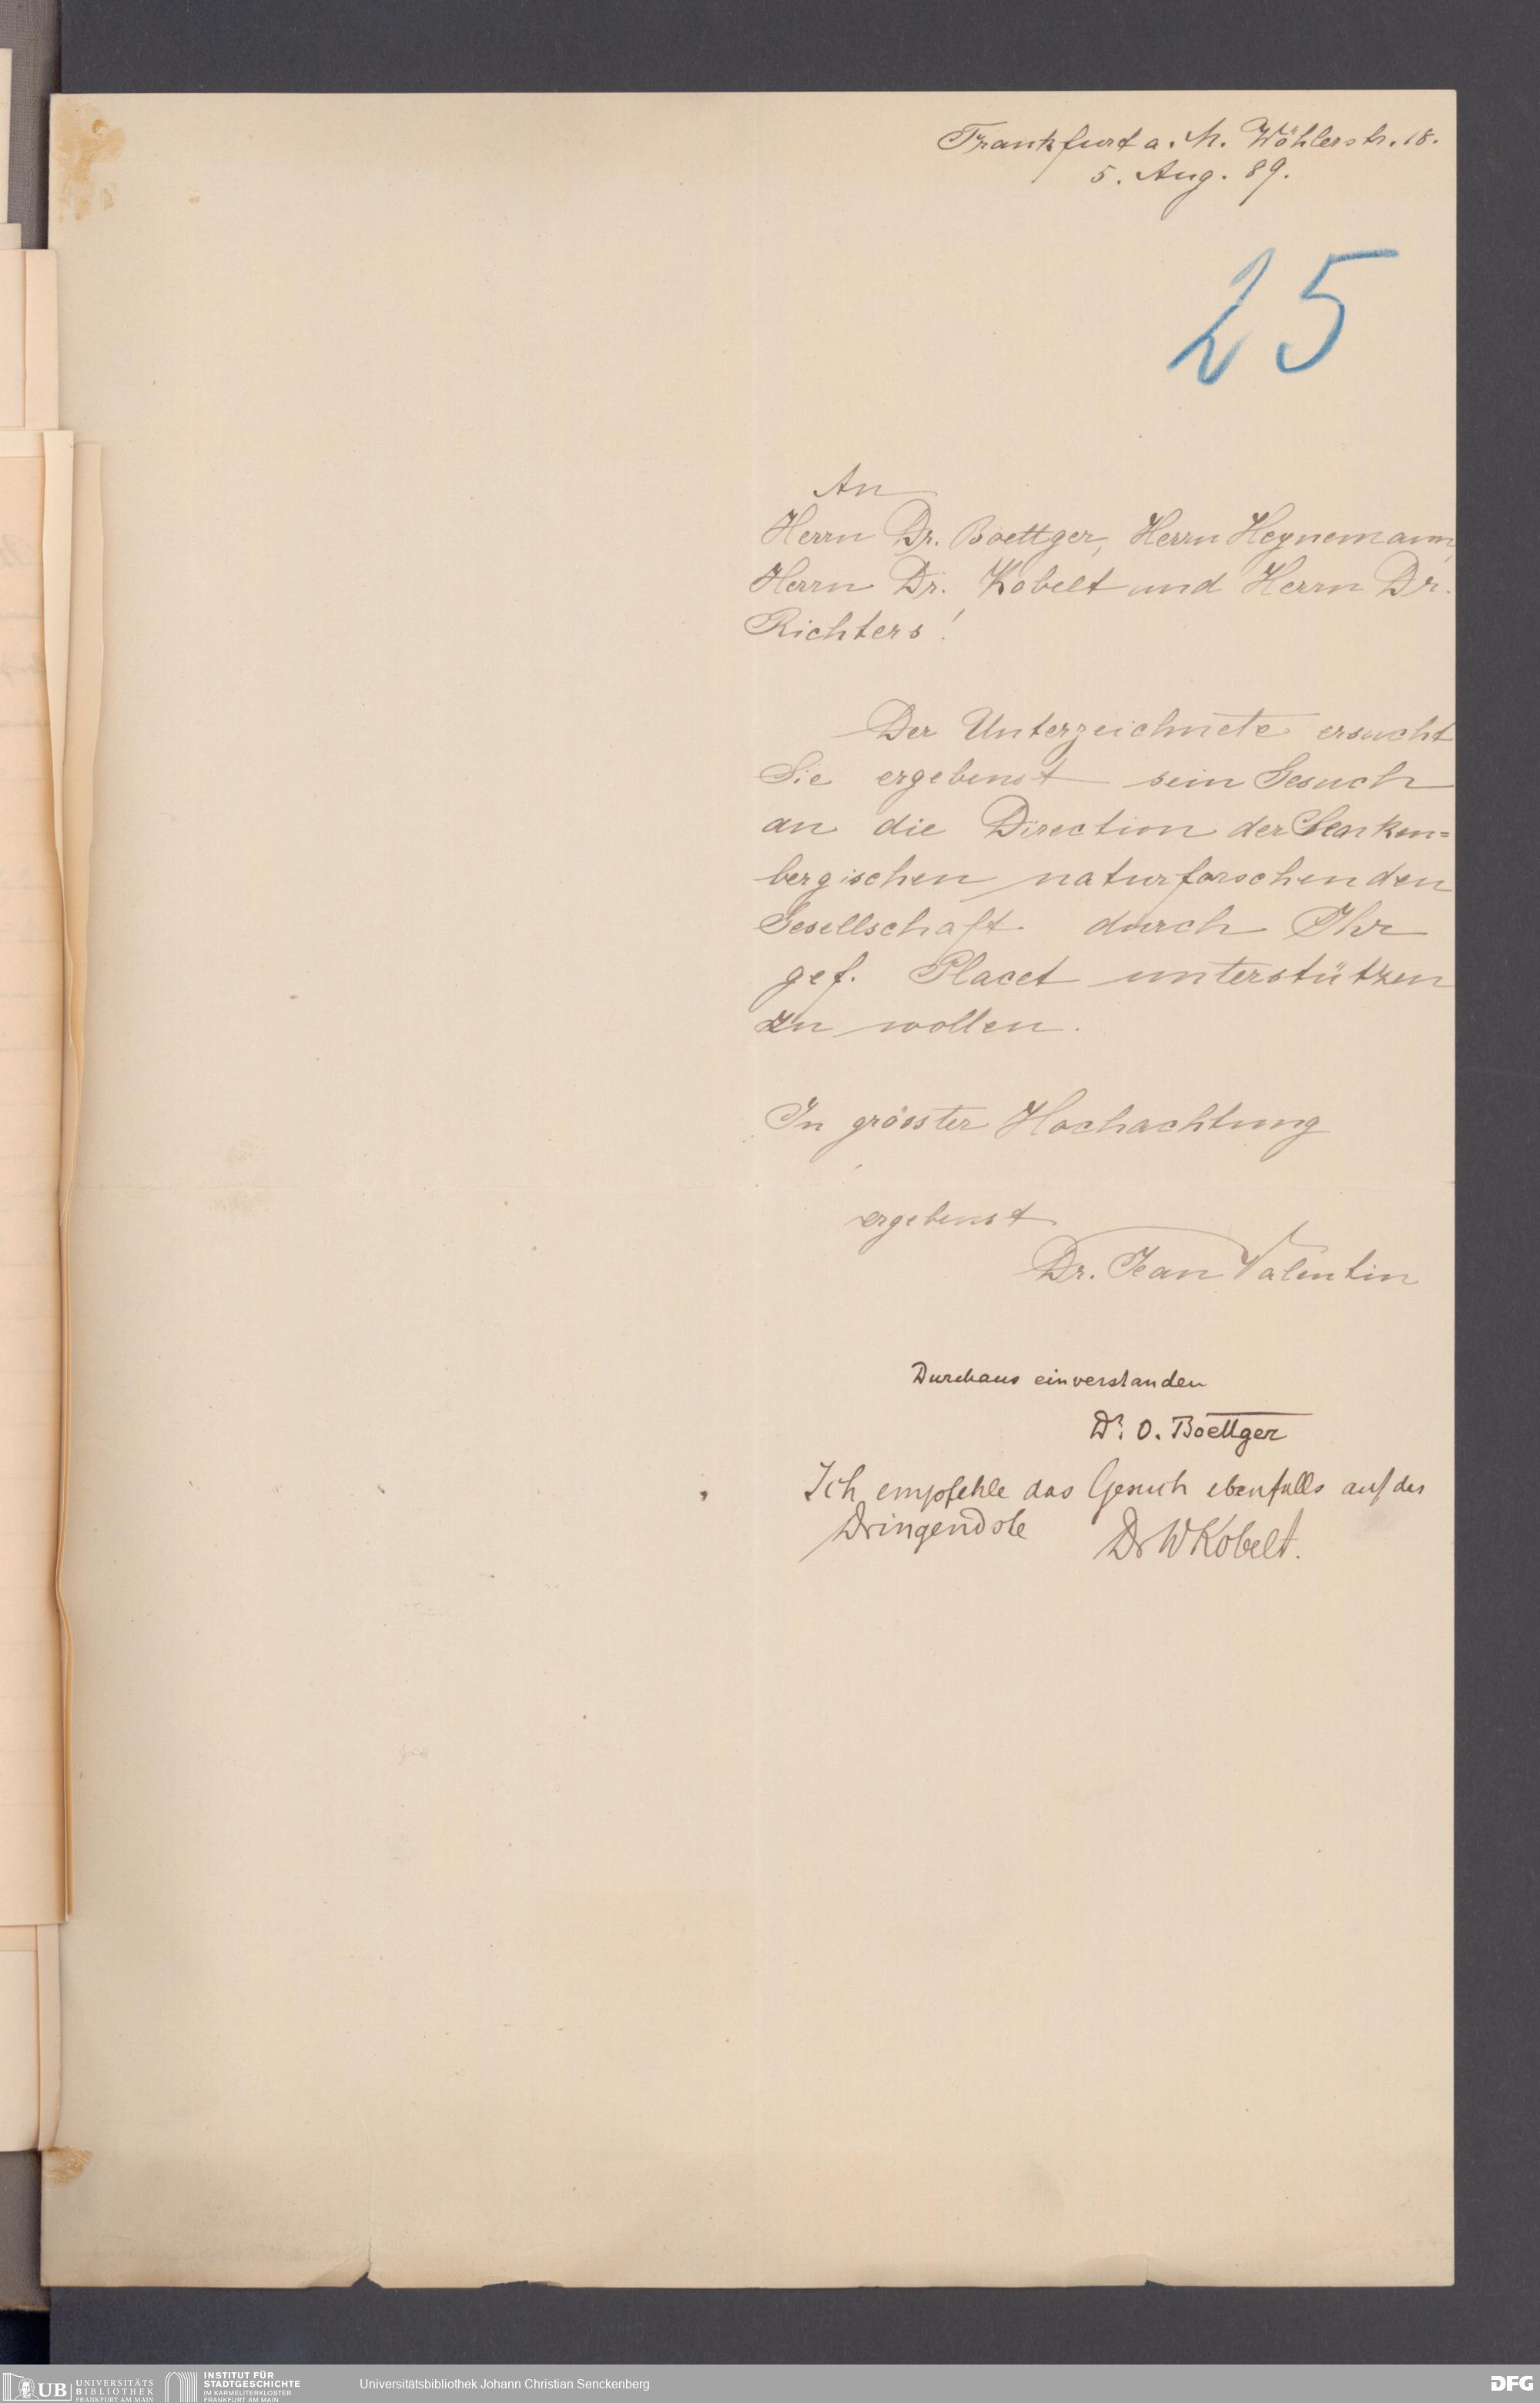 Frankfurt a. M. Wöhlerstr. 18.
5. Aug. 89.
25
An
Herrn Dr. Boettger, Herrn Heynemann,
Herrn Dr. Kobelt und Herrn Dr.
Richters!
Der Unterzeichnete ersucht
Sie ergebenst sein Gesuch
an die Direction der Senken=
bergischen naturforschenden
Gesellschaft durch Ihr
gef. Placet unterstützen
zu wollen.
In grösster Hochachtung
ergebenst
Dr. Jean Valentin
Durchaus einverstanden
Dr. O. Boettger
Ich empfehle das Gesuch ebenfalls auf das
Dringendste Dr W Kobelt.
UB UNIVERSITÄTS
BIBLIOTHEK
FRANKFURT AM MAIN
INSTITUT FÜR
STADTGESCHICHTE
IM KARMELITERKLOSTER
FRANKFURT AM MAIN
Universitätsbibliothek Johann Christian Senckenberg
DFG